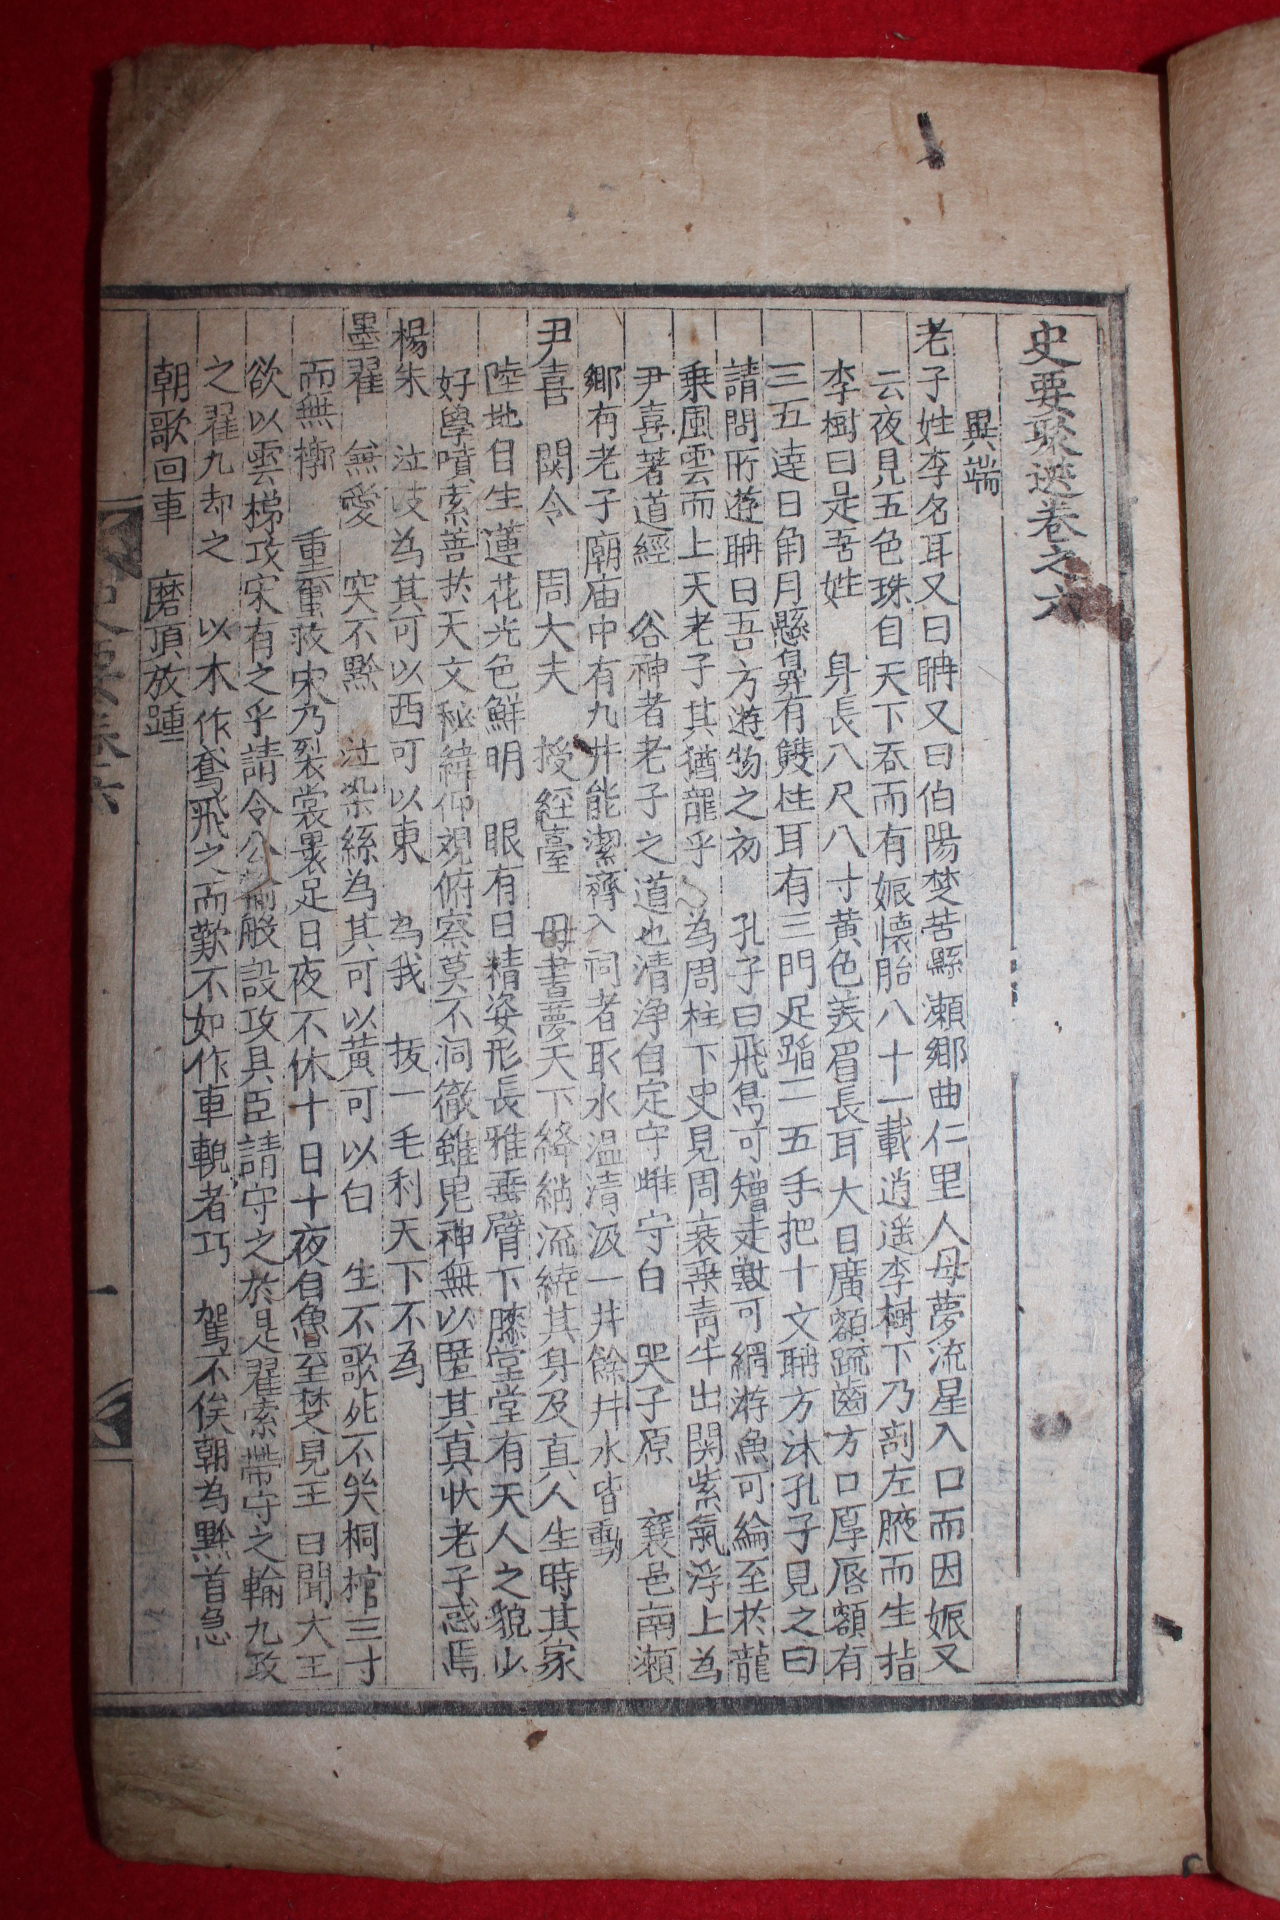 史要聚選卷之六
異端
老子姓李名耳又曰聃又曰伯陽楚苦縣瀨鄉曲仁里人母夢流星入口而因娠又
云夜見五色珠自天下吞而有娠懷胎八十一載逍遙李樹下乃剖左腋而生指
李樹曰是吾姓 身長八尺八寸黃色美眉長耳大目廣額疏齒方口厚唇額有
三五達日角月懸鼻有雙柱耳有三門足蹈二五手把十文聃方沐孔子見之曰
請問所遊聃曰吾方遊物之初 孔子曰飛鳥可矰走獸可網游魚可綸至於龍
乘風雲而上天老子其猶龍乎 為周柱下史見周衰乘青牛出關紫氣浮上為
尹喜著道經 谷神者老子之道也清淨自定守雌守白 哭子原 襄邑南瀨
鄉有老子廟庙中有九井能潔齊入祠者取水温清汲一井餘井水皆動
尹喜 関令 周大夫 授經臺 母晝夢天下絳綃流繞其身及真人生時其家
陸地自生蓮花光色鮮明 眼有日精姿形長雅垂臂下膝堂堂有天人之貌少
好學噴索善於天文秘緯仰視俯察莫不洞徹雖鬼神無以匿其真狀老子惑焉
楊朱 泣歧為其可以西可以東 為我 拔一毛利天下不為
墨翟 無愛 突不黔 泣染絲為其可以黃可以白 生不歌死不哭桐棺三寸
而無槨 重蠒救宋乃裂裳裹足日夜不休十日十夜自魯至楚見王曰聞大王
欲以雲梯攻宋有之乎請令公輸般設攻具臣請守之於是翟索帶守之輸九攻
之翟九却之 以木作鳶飛之而歎不如作車輗者巧 駕不俟朝為黔首急
朝歌回車 磨頂放踵
史要卷六
一